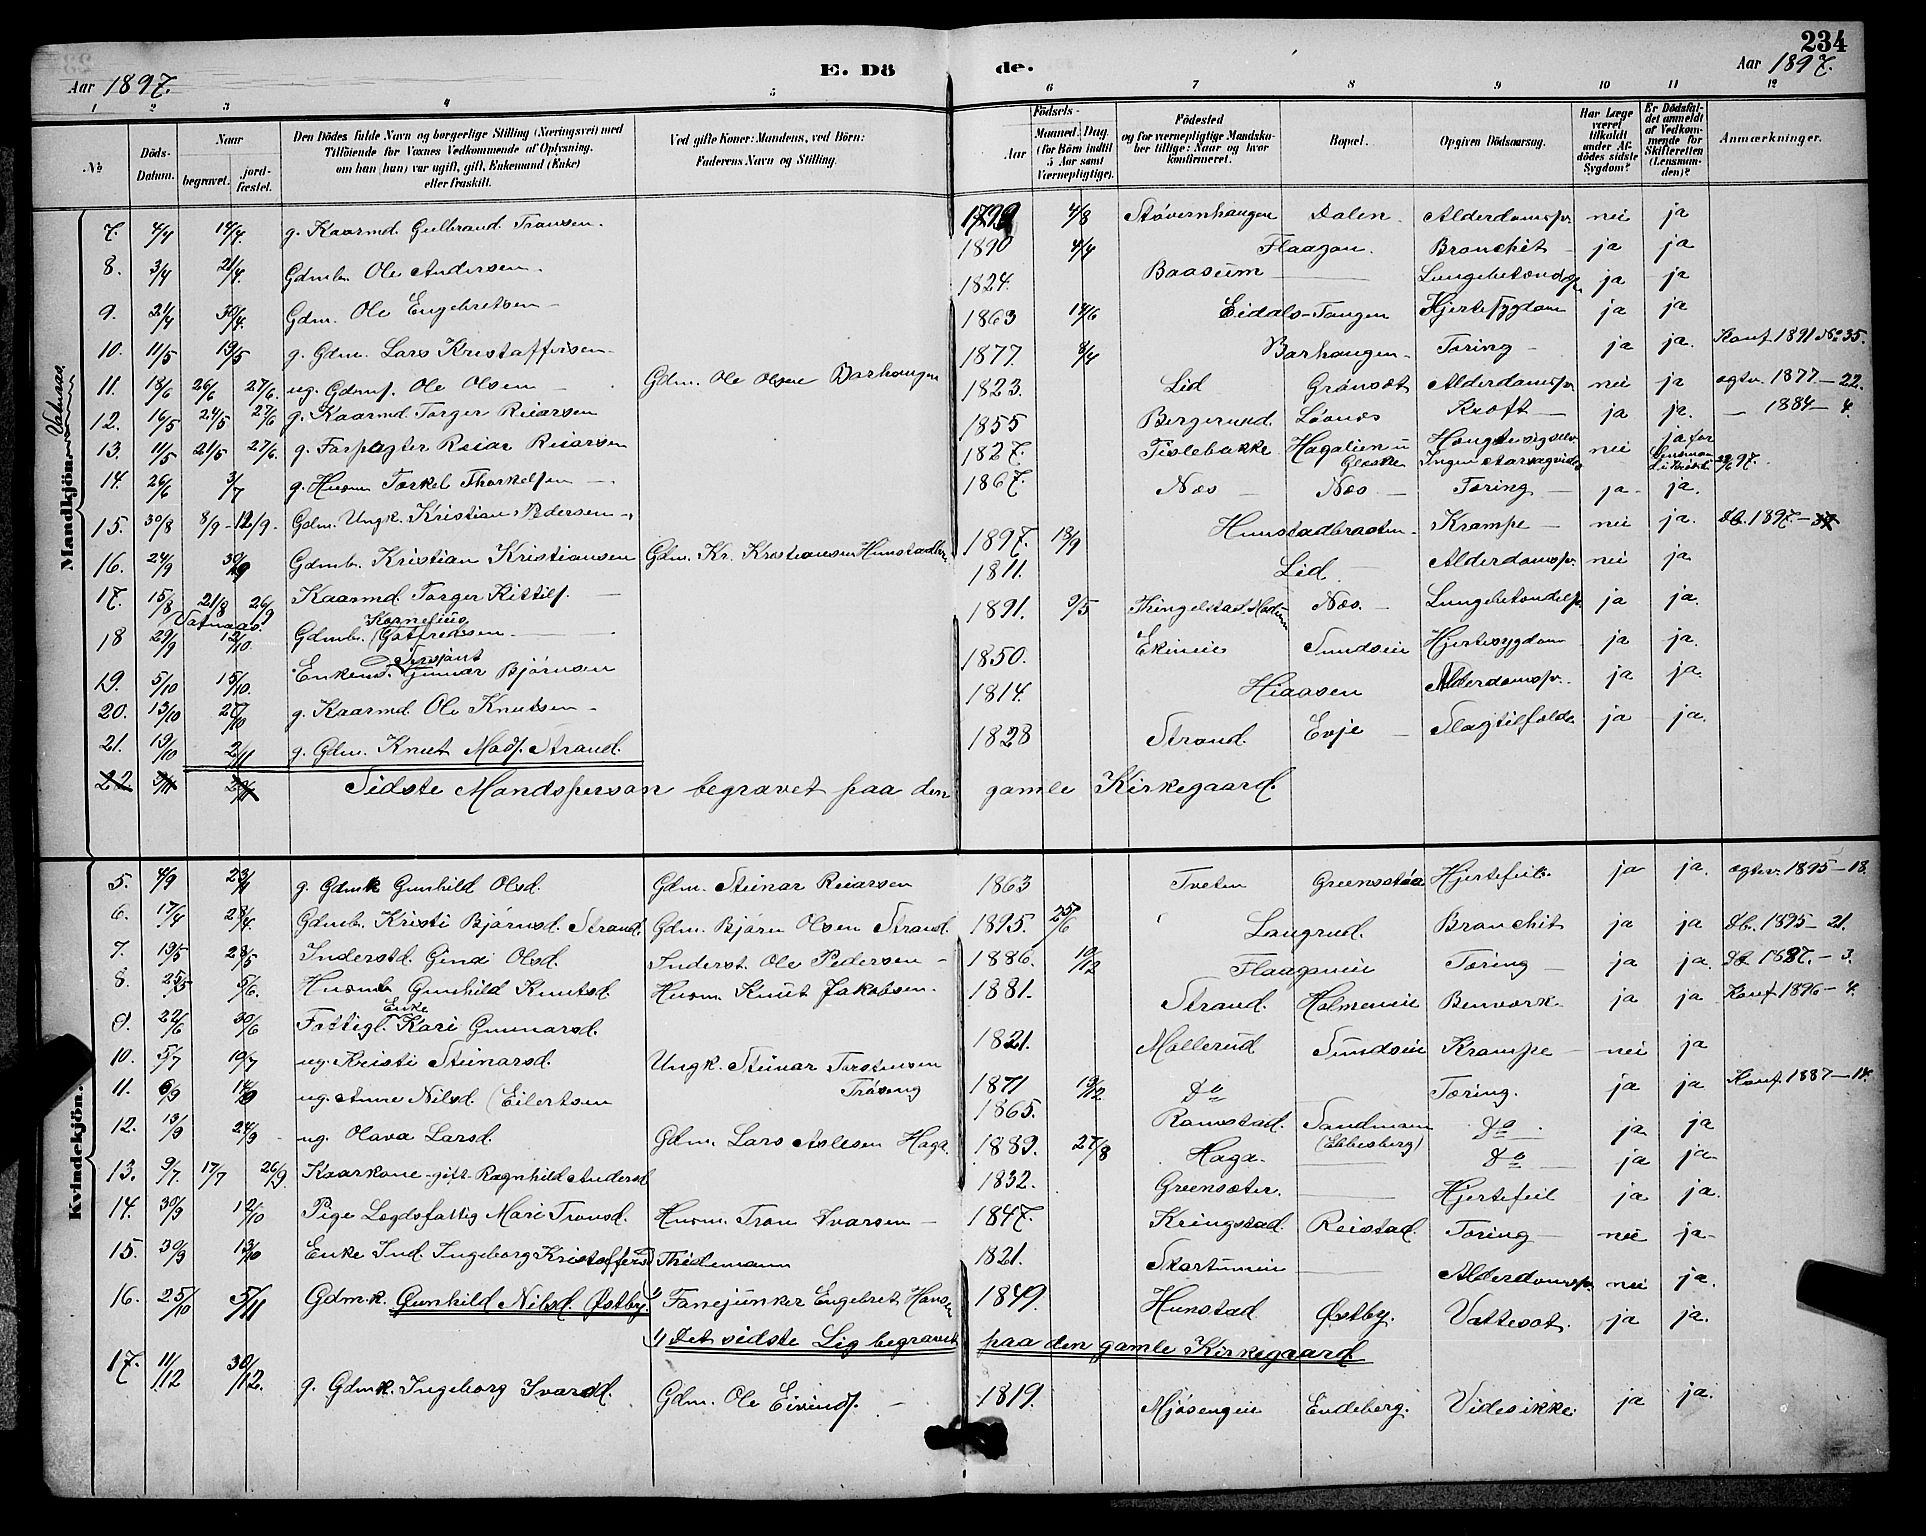 234
E. Dö
de.
Aar 1897.
Aar 1897.
1 2 3 4 5 6 7 8 9 10 11 12
No
Döds-Datum.
Naar
begravet.
jord-fæstet.
Den Dödes fulde Navn og borgerlige Stilling (Næringsvei) med
Tilföiende for Voxnes Vedkommende af Oplysning,
om han (hun) var ugift, gift, Enkemand (Enke)
eller fraskilt.
Ved gifte Koner: Mandens, ved Börn:
Faderens Navn og Stilling.
Födsels-
Aar
Maaned. Dag.
(for Börn indtil
5 Aar samt
Værnepligtige).
Födested
og for værnepligtige Mandska-
ber tillige: Naar og hvor
konfirmeret.
Bopæl.
Opgiven Dödsaarsag.
Har Læge
været
tilkaldt
under Af-
dödes sidste
Sygdom?
Er Dödsfal-
det anmeldt
af Vedkom-
mende for
Skifteretten
(Lensman-
den)?
Anmærkninger.
Mandkjön. Vatnaas
7. 4/4 14/4. g. Kaarmd. Gulbrand Tronsen. 1799 4/8 Støvernhaugen Dalen. Alderdomssv. nei ja
8. 3/4 21/4 Gdmb. Ole Andersen. 1890 4/4 Flaagan. Bronchit ja ja
9. 21/4 30/4. Gdm. Ole Engebretsen 1824. Baasum Lungebetændelse ja ja
10. 11/5 19/5 g. Gdm. Lars Kristoffersen 1863 14/6 Eidals-Tangen Hjertesygdom ja ja
11. 18/6 26/6 27/6. ug. Gdms. Ole Olsen Gdm. Ole Olsen Barhaugen 1877. 8/4 Barhaugen Tæring ja ja. Konf. 1891 No 35.
12. 16/5 24/5 27/6 g. Kaarmd Torger Reiarsen 1823. Lid Grønsæt Alderdomssv. nei ja ægtv. 1877 - 22.
13. 11/5 21/5 27/6. g. Forpagter Reiar Reiarsen 1855 Bergerund Løvnæs Kræft ja ja. 1884 - 4.
14. 26/6 3/7 g. Husm Torkel Thorkelsen 1827. Tislebakke Hagalien u Glesne nei ja for Lensmanden i Krødsh. 22/6 97.
15. 30/8 8/9 - 12/9. Gdm. Ungk. Kristian Pedersen 1867. Næs Næs Tæring ja ja.
16. 24/9 30/9 Gdmb. Kristian Kristiansen Gdm. Kr. Kristiansen Hunstadbr. 1897. 18/9 Hunstadbraaten Krampe nei ja. Db. 1897 -
17. 15/8 21/8 26/9 Kaarmd Torger Kittils. 1811. Lid Alderdomssv. nei ja
Vatnaas.
18 29/9 12/10. Gdmb. Kornelius (Gotfredsen 1891. 9/5 Thingelstad, Modum Næs. Lungebetændelse ja ja.
19. 5/10 15/10. Enkem. Sersjant Gunnar Bjørnsen 1850. Ekineie Sundseie Hjertesygdom ja ja
20. 13/10 27/10 g. Kaarmd. Ole Knutsen 1814. Hiaasen Alderdomssv. ja ja.
21. 19/10 2/11 g. Gdm. Knut Mads. Strand. 1828 Strand. Evje Slagtilfælde ja ja.
22 Sidste Mandsperson begravet paa den gamle Kirkegaard.
Kvindekjön.
5. 4/9 23/4 g. Gdmk Gunhild Olsd. Gdm. Steinar Reiarsen 1863 Tveten Greensæteie Hjertefeil. ja ja. ægtv. 1895 - 18.
6. 17/4 28/4. Gdmb. Kristi Bjørnsd. Strand. Gdm. Bjørn Olsen Strand. 1895. 25/6 Langrud. Bronchit ja ja Db. 1895 - 21.
7. 19/5 28/5 Inderstd. Gina Olsd. Inderst. Ole Pedersen 1886. 10/12 Flaagseie Tæring ja ja. Db 1887. - 3.
8. 25/5 5/6. Husmb Gunhild Knutsd Husm. Knut Jakobsen. 1881. Strand. Holmeneie Benværk. ja ja Konf 1896 - 4.
9. 22/6 30/6 Fattigl. Enke Kari Gunnarsd. 1821. Møllerud Sundseie Krampe nei ja
10. 5/7 10/7 ug. Kristi Steinarsd. Ungk. Steinar Torstensen Trøseng 1871 19/2 Do Tæring. ja ja Konf 1887 - 14.
11. 6/9 14/9 ug. Anne Nilsd (Eilertsen 1865. Ramstad. Sandmoen (Ebbesberg) Do ja ja
12. 13/9 24/9 ug. Olava Larsd. Gdm. Lars Aslesen Haga. 1889. 27/8 Haga. Do ja ja.
13. 9/7 17/7 26/9. Kaarkone gift Ragnhild Andersd 1832. Greensæter. Hjertefeil ja ja.
14. 30/9 12/10 Pige Lægdsfattig Mari Tronsd. Husm. Tron Ivarsen 1847. Kringstad. Reistad. Tæring nei ja.
15. 30/9 13/10 Enke Ind. Ingeborg Kristoffersd Thidemann 1821. Skartumeie Alderdomssv. nei ja.
16. 25/10 5/11 Gdmk. Gunhild Nilsd. Østby. 1) Fanejunker Engebret Hansen 1849. Hunstad. Østby. Vattersot. ja ja.
1) Det sidste Lig begravet paa den gamle Kirkegaard.
17. 11/12 30/12. g. Gdmk. Ingeborg Ivarsd. Gdm. Ole Eivinds. 1819. Mjøsengeie Endeberg. Vides ikke. ja ja.